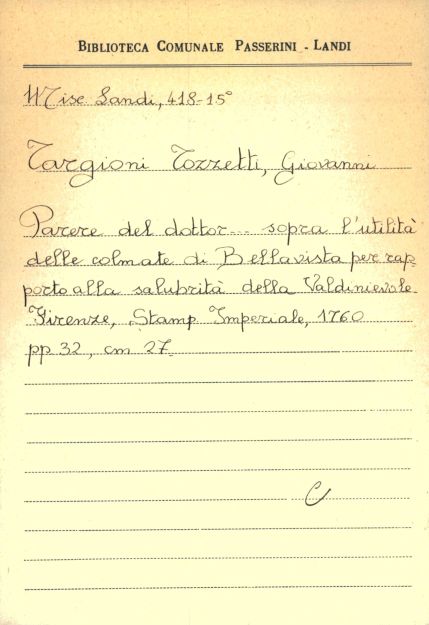 BIBLIOTECA COMUNALE PASSERINI - LANDI
Misc Landi, 418-15°
Targioni Tozzetti, Giovanni
Parere del dottor... sopra l'utilità
delle colmate di Bellavista per rap-
porto alla salubrità della Valdinievole
Firenze, Stamp Imperiale, 1760
pp. 32, cm 27.
C